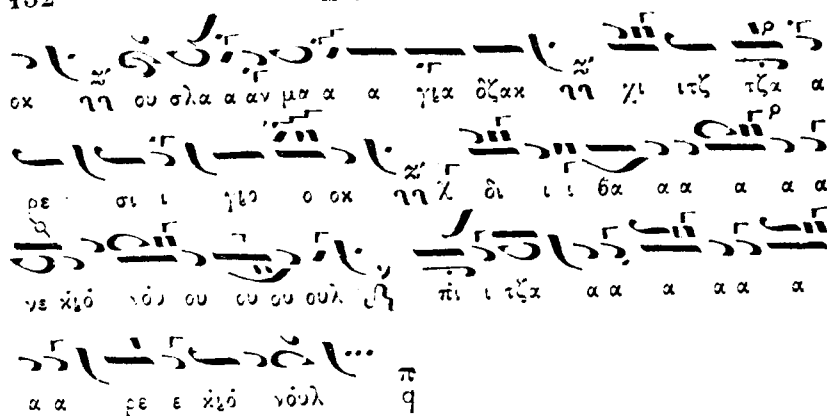 οκ ου σλα α αν μα α α για ὄζακ χι ιτζ τζα α
ρε σι ι γιο ο οκ δι ι ι βα α α α α α
νε κιὸ νόυ ου ου ου ουλ πι ι τζα α α α α α α
α α ρε ε κιὸ νόυλ